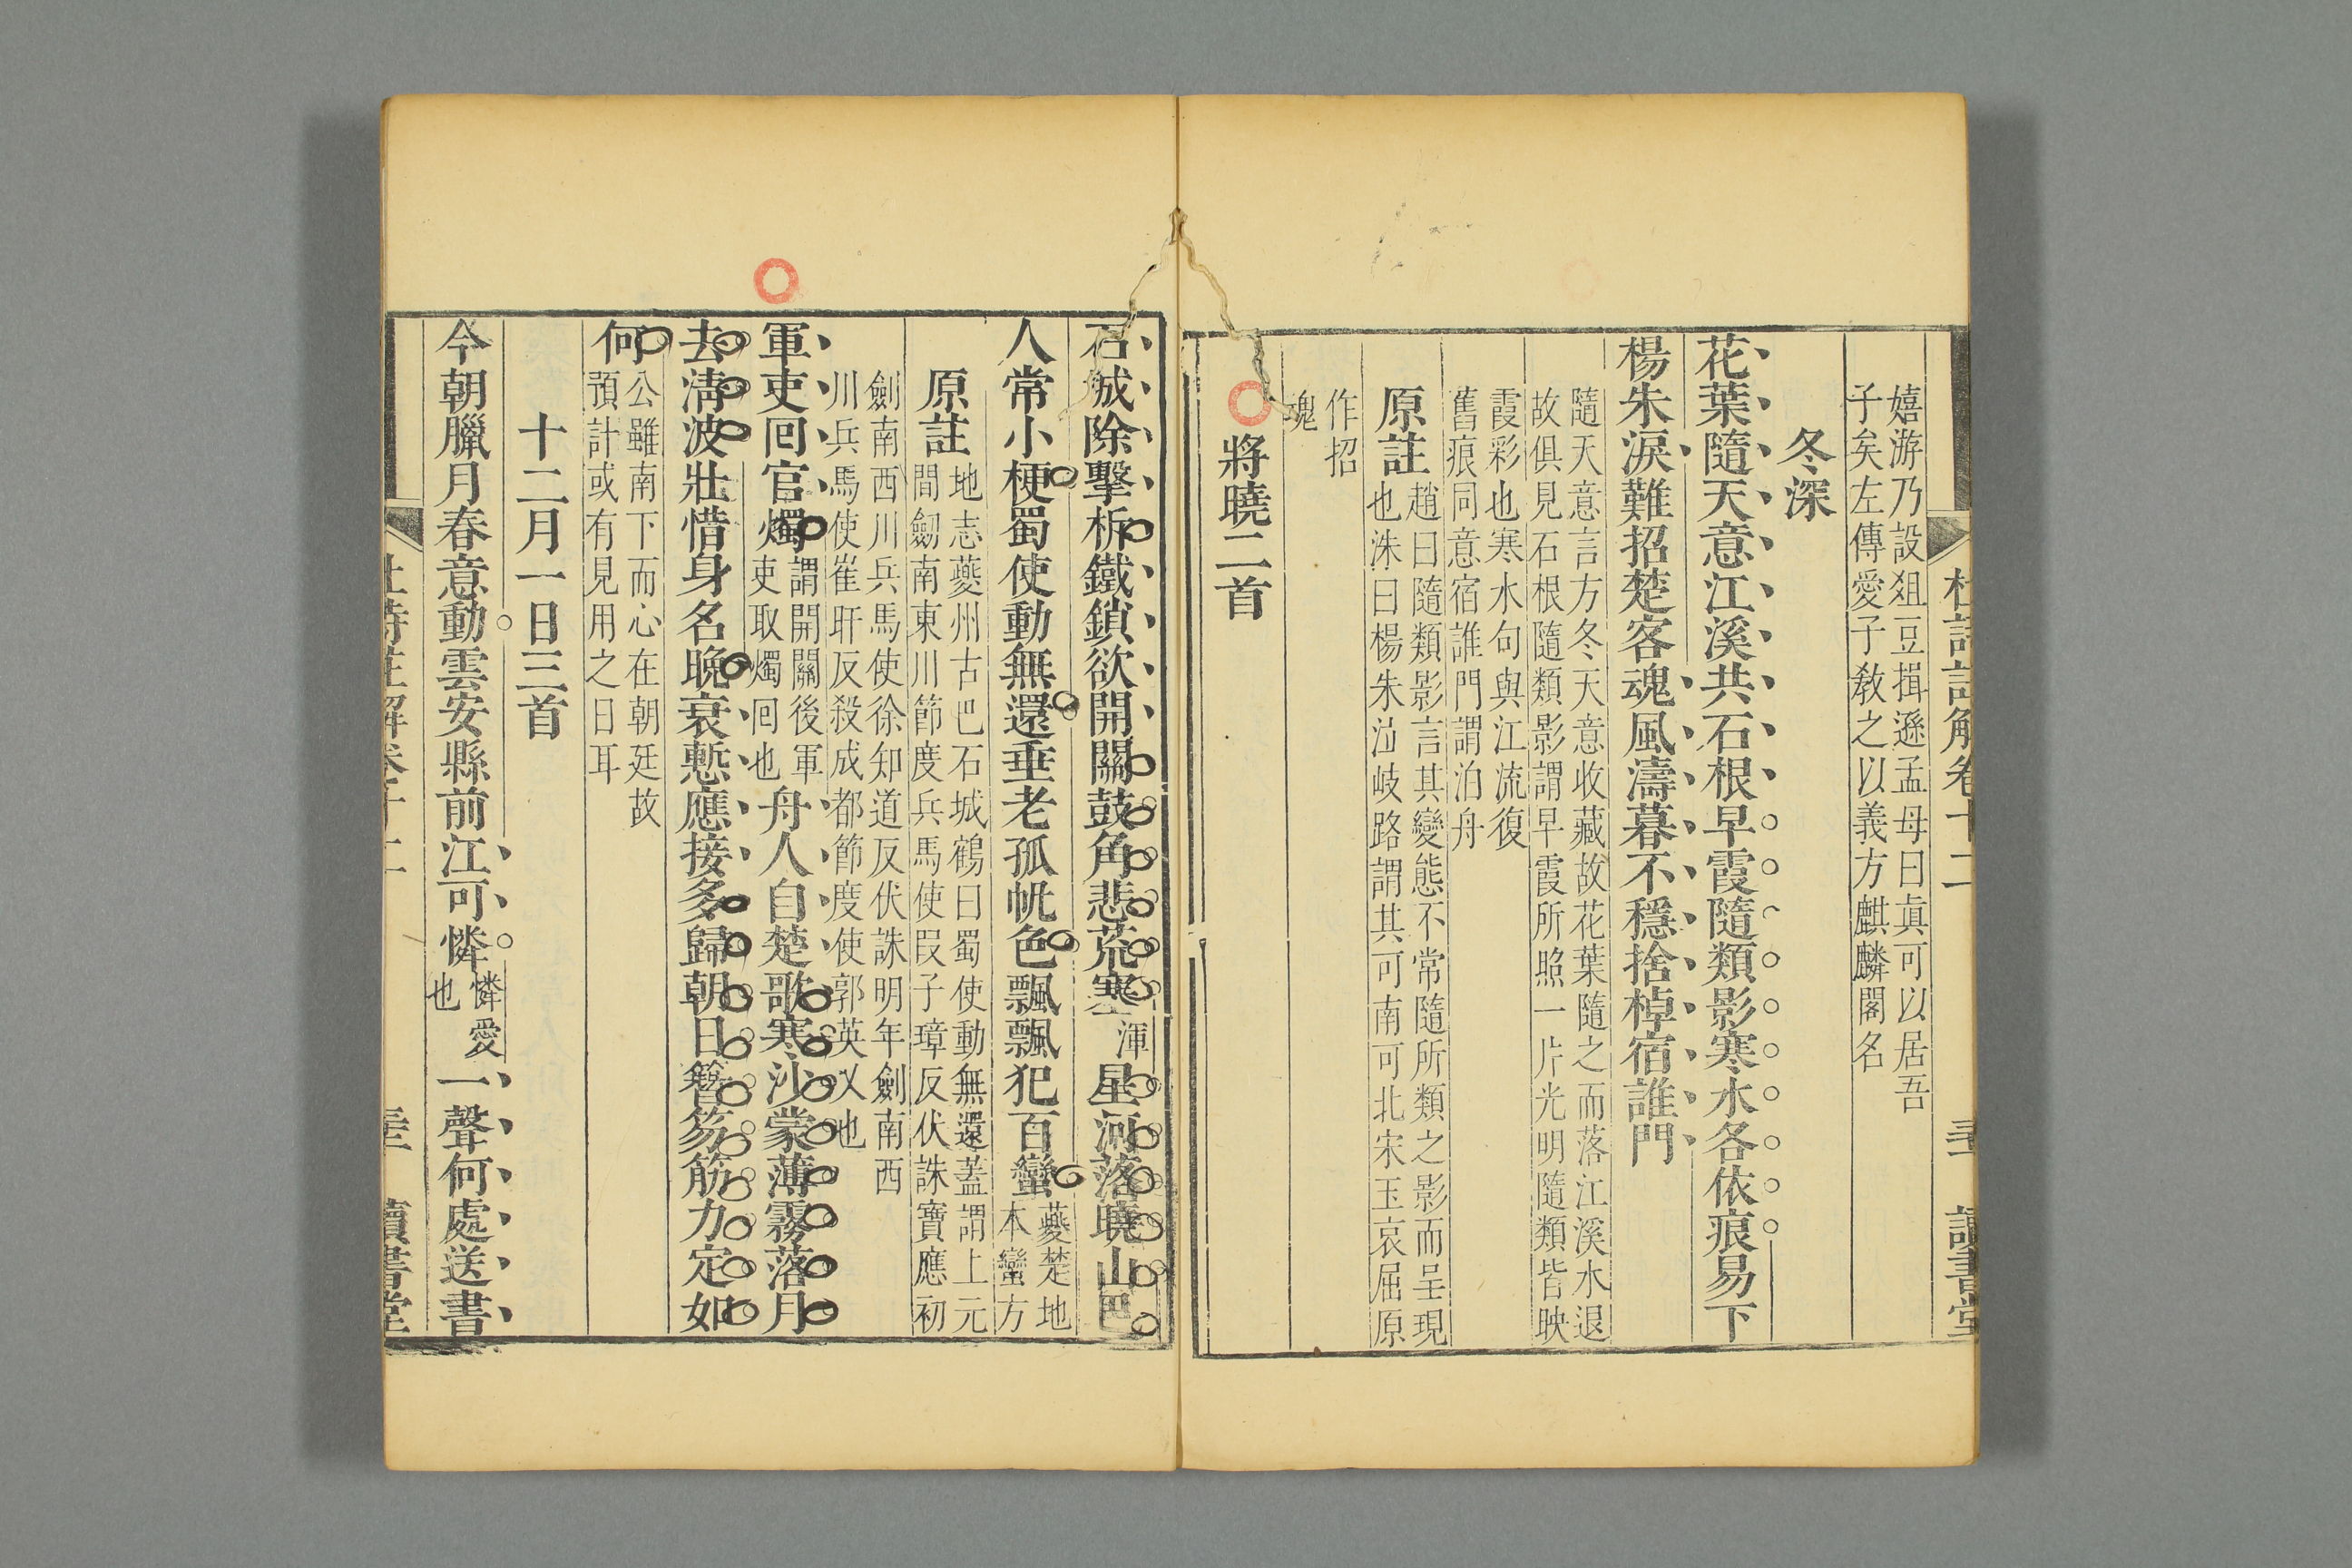 杜詩註解卷十二
讀書堂
嬉游乃設俎豆揖遜孟母曰眞可以居吾
子矣左傳愛子敎之以義方麒麟閣名
冬深
花葉隨天意江溪共石根早霞隨類影寒水各依痕易下
楊朱淚難招楚客魂風濤暮不穩捨棹宿誰門
隨天意言方冬天意收藏故花葉隨之而落江溪水退
故俱見石根隨類影謂早霞所照一片光明隨類皆映
霞彩也寒水句與江流復
舊痕同意宿誰門謂泊舟
原註
趙曰隨類影言其變態不常隨所類之影而呈現
也洙曰楊朱泣岐路謂其可南可北宋玉哀屈原
作招
魂
將曉二首
石城除擊柝鐵鎖欲開關鼓角悲荒塞渾星河落曉山巴
人常小梗蜀使動無還垂老孤帆色飄飄犯百蠻
夔楚地
本蠻方
原註
地志夔州古巴石城鶴曰蜀使動無還蓋謂上元
間劒南東川節度兵馬使段子璋反伏誅寶應初
劍南西川兵馬使徐知道反伏誅明年劍南西
川兵馬使崔旰反殺成都節度使郭英乂也
軍吏回官燭
謂開關後軍
吏取燭回也
舟人自楚歌寒沙蒙薄霧落月
去淸波壯惜身名晚衰慙應接多歸朝日簪笏筋力定如
何
公雖南下而心在朝廷故
預計或有見用之日耳
十二月一日三首
今朝臘月春意動雲安縣前江可憐
憐愛
也
一聲何處送書
讀書堂